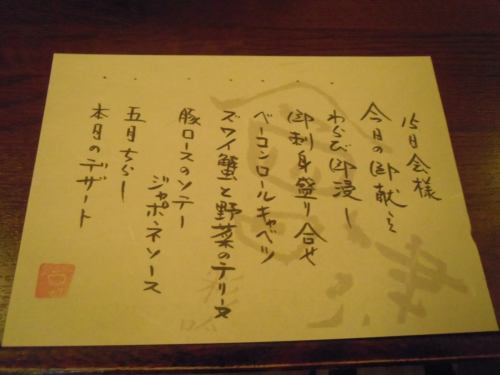 15日会様
今月の御献立
わらび御浸し
御刺身盛り合せ
ベーコンロールキャベツ
ズワイ蟹と野菜のテリーヌ
豚ロースのソテー
ジャポネソース
五月ちらし
本日のデザート